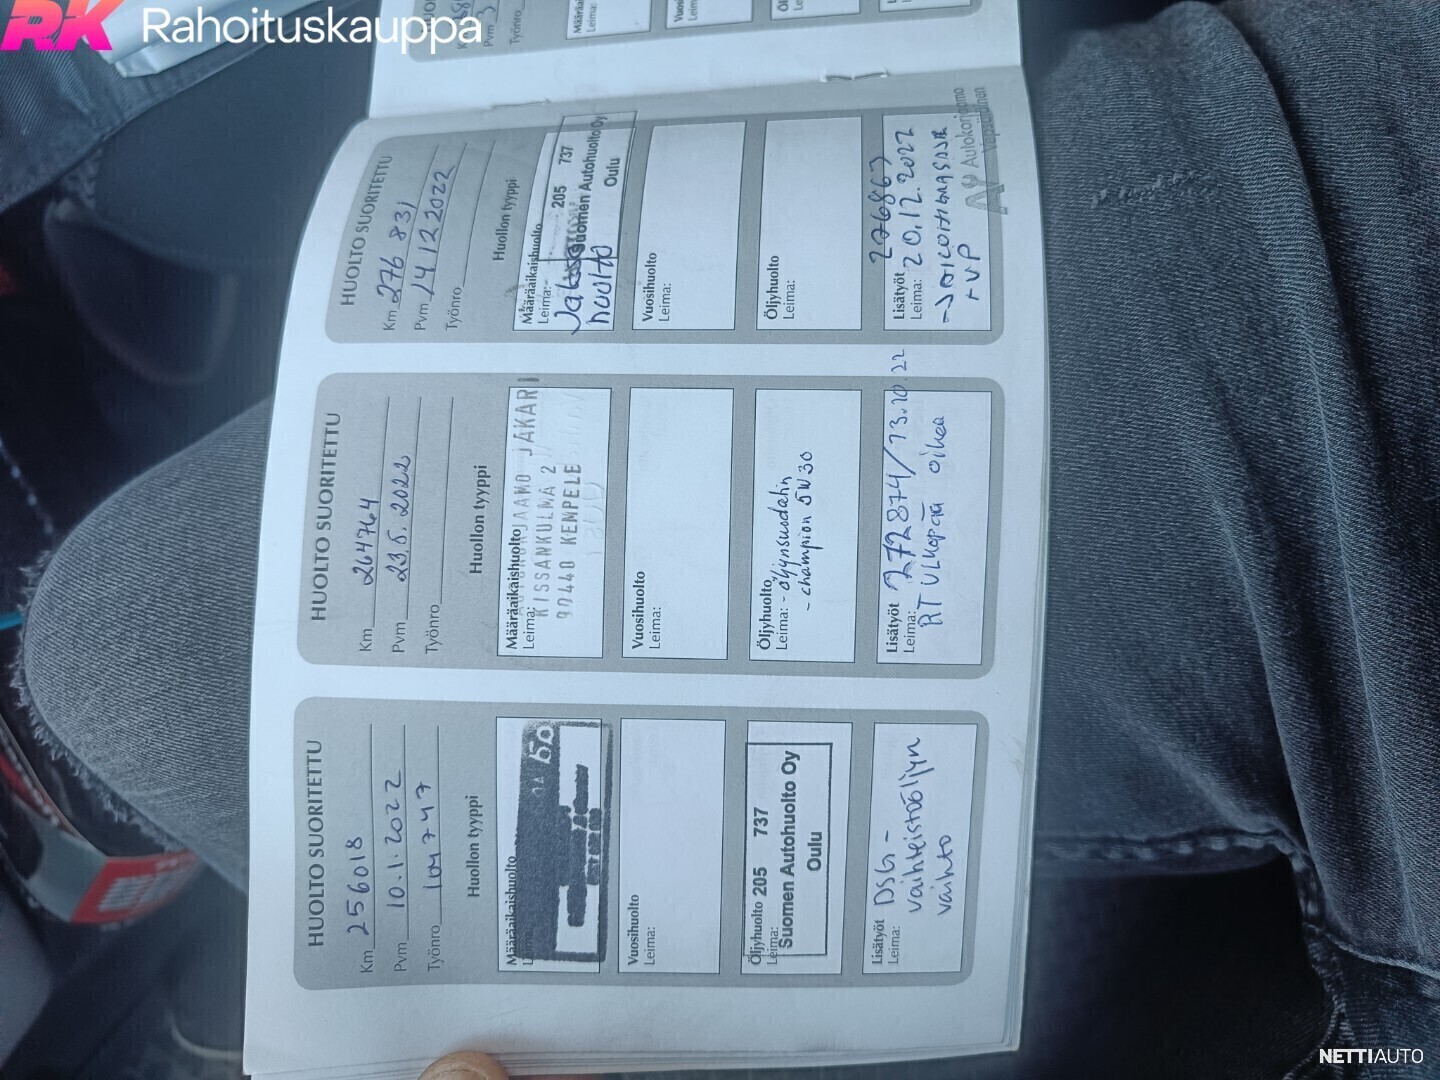 RK Rahoituskauppa
HUOLTO SUORITETTU
Km 256018
Pvm 10.1.2022
Työnro 1041747
Huollon tyyppi
Määräaikaishuolto
Vuosihuolto
Leima:
Öljyhuolto 205 737
Leima:
Suomen Autohuolto Oy
Oulu
Lisätyöt DSG-
Leima: vaihteistoöljyn
vaihto
HUOLTO SUORITETTU
Km 264764
Pvm 23.5.2022
Työnro
Huollon tyyppi
Määräaikaishuolto JAKARI
Leima: KISSANKULMA 2
90440 KEMPELE
Vuosihuolto
Leima:
Öljyhuolto
Leima: - öljynsuodatin
- champion 5W30
Lisätyöt 272874/13.10 22
Leima: RT ULKOPÄÄ oikea
HUOLTO SUORITETTU
Km 276 831
Pvm 14 12 2022
Työnro
Huollon tyyppi
Määräaikaishuolto 205 737
Leima: Suomen Autohuolto Oy
Oulu
huolto
Vuosihuolto
Leima:
Öljyhuolto
Leima:
Lisätyöt
Leima: 20.12.2022
+VP
Autokorjaamo
NETTIAUTO